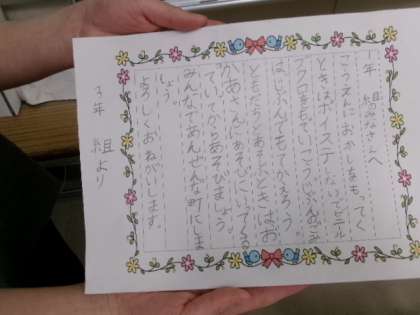 年 組のみなさんへ
こうえんにおかしをもってく
ときはポイステしないでビニル
ブクロをもて、
はじぶんでもてかえろう。
ともだちとあそぶときはお
かあさんにあそびにいてくる
ていてからあそびましょう。
みんなであんぜんな町にしま
しょう。
よろしくおねがいします。
3年 組より